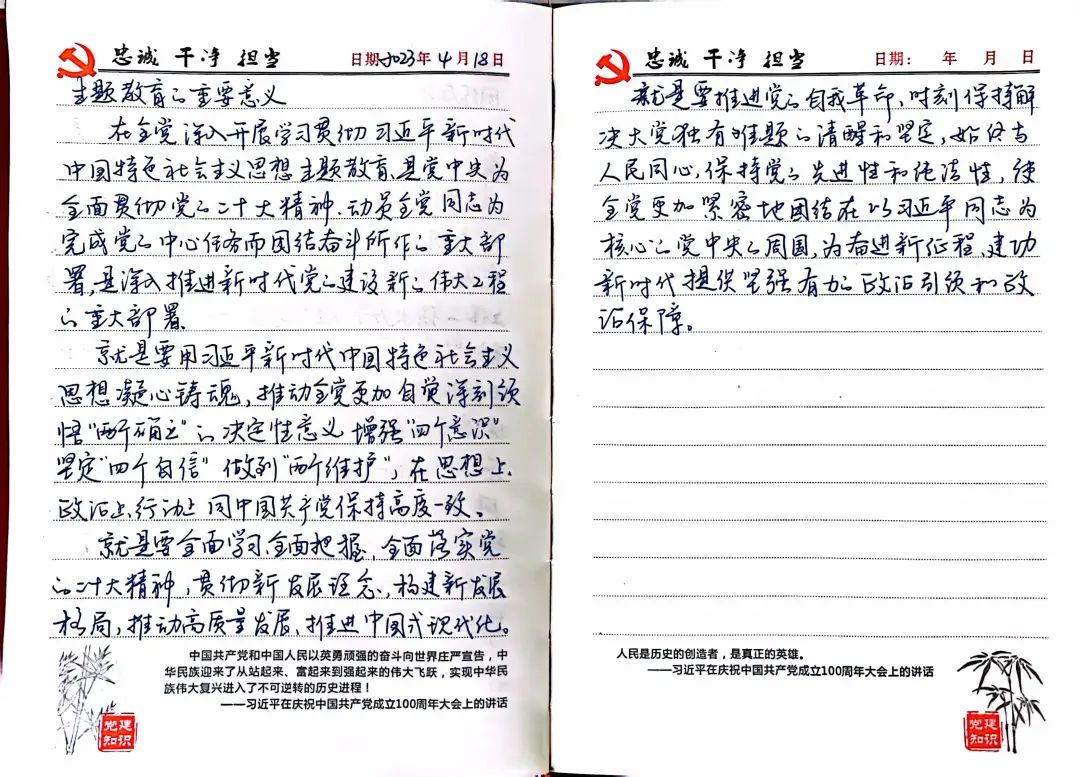 忠诚 干净 担当 日期:2023年4月18日
主题教育的重要意义
在全党深入开展学习贯彻习近平新时代
中国特色社会主义思想主题教育,是党中央为
全面贯彻党的二十大精神、动员全党同志为
完成党的中心任务而团结奋斗所作的重大部
署,是深入推进新时代党的建设新的伟大工程
的重大部署。
就是要用习近平新时代中国特色社会主义
思想凝心铸魂,推动全党更加自觉深刻领
悟“两个确立”的决定性意义 增强“四个意识”
坚定“四个自信” 做到“两个维护”,在思想上、
政治上、行动上同中国共产党保持高度一致。
就是要全面学习、全面把握、全面落实党
的二十大精神,贯彻新发展理念、构建新发展
格局,推动高质量发展、推进中国式现代化。
中国共产党和中国人民以英勇顽强的奋斗向世界庄严宣告,中
华民族迎来了从站起来、富起来到强起来的伟大飞跃,实现中华民
族伟大复兴进入了不可逆转的历史进程!
——习近平在庆祝中国共产党成立100周年大会上的讲话
党建
知识
忠诚 干净 担当 日期: 年 月 日
就是要推进党的自我革命,时刻保持解
决大党独有难题的清醒和坚定,始终与
人民同心,保持党的先进性和纯洁性,使
全党更加紧密地团结在以习近平同志为
核心的党中央的周围,为奋进新征程,建功
新时代提供坚强有力的政治引领和政
治保障。
人民是历史的创造者,是真正的英雄。
——习近平在庆祝中国共产党成立100周年大会上的讲话
党建
知识